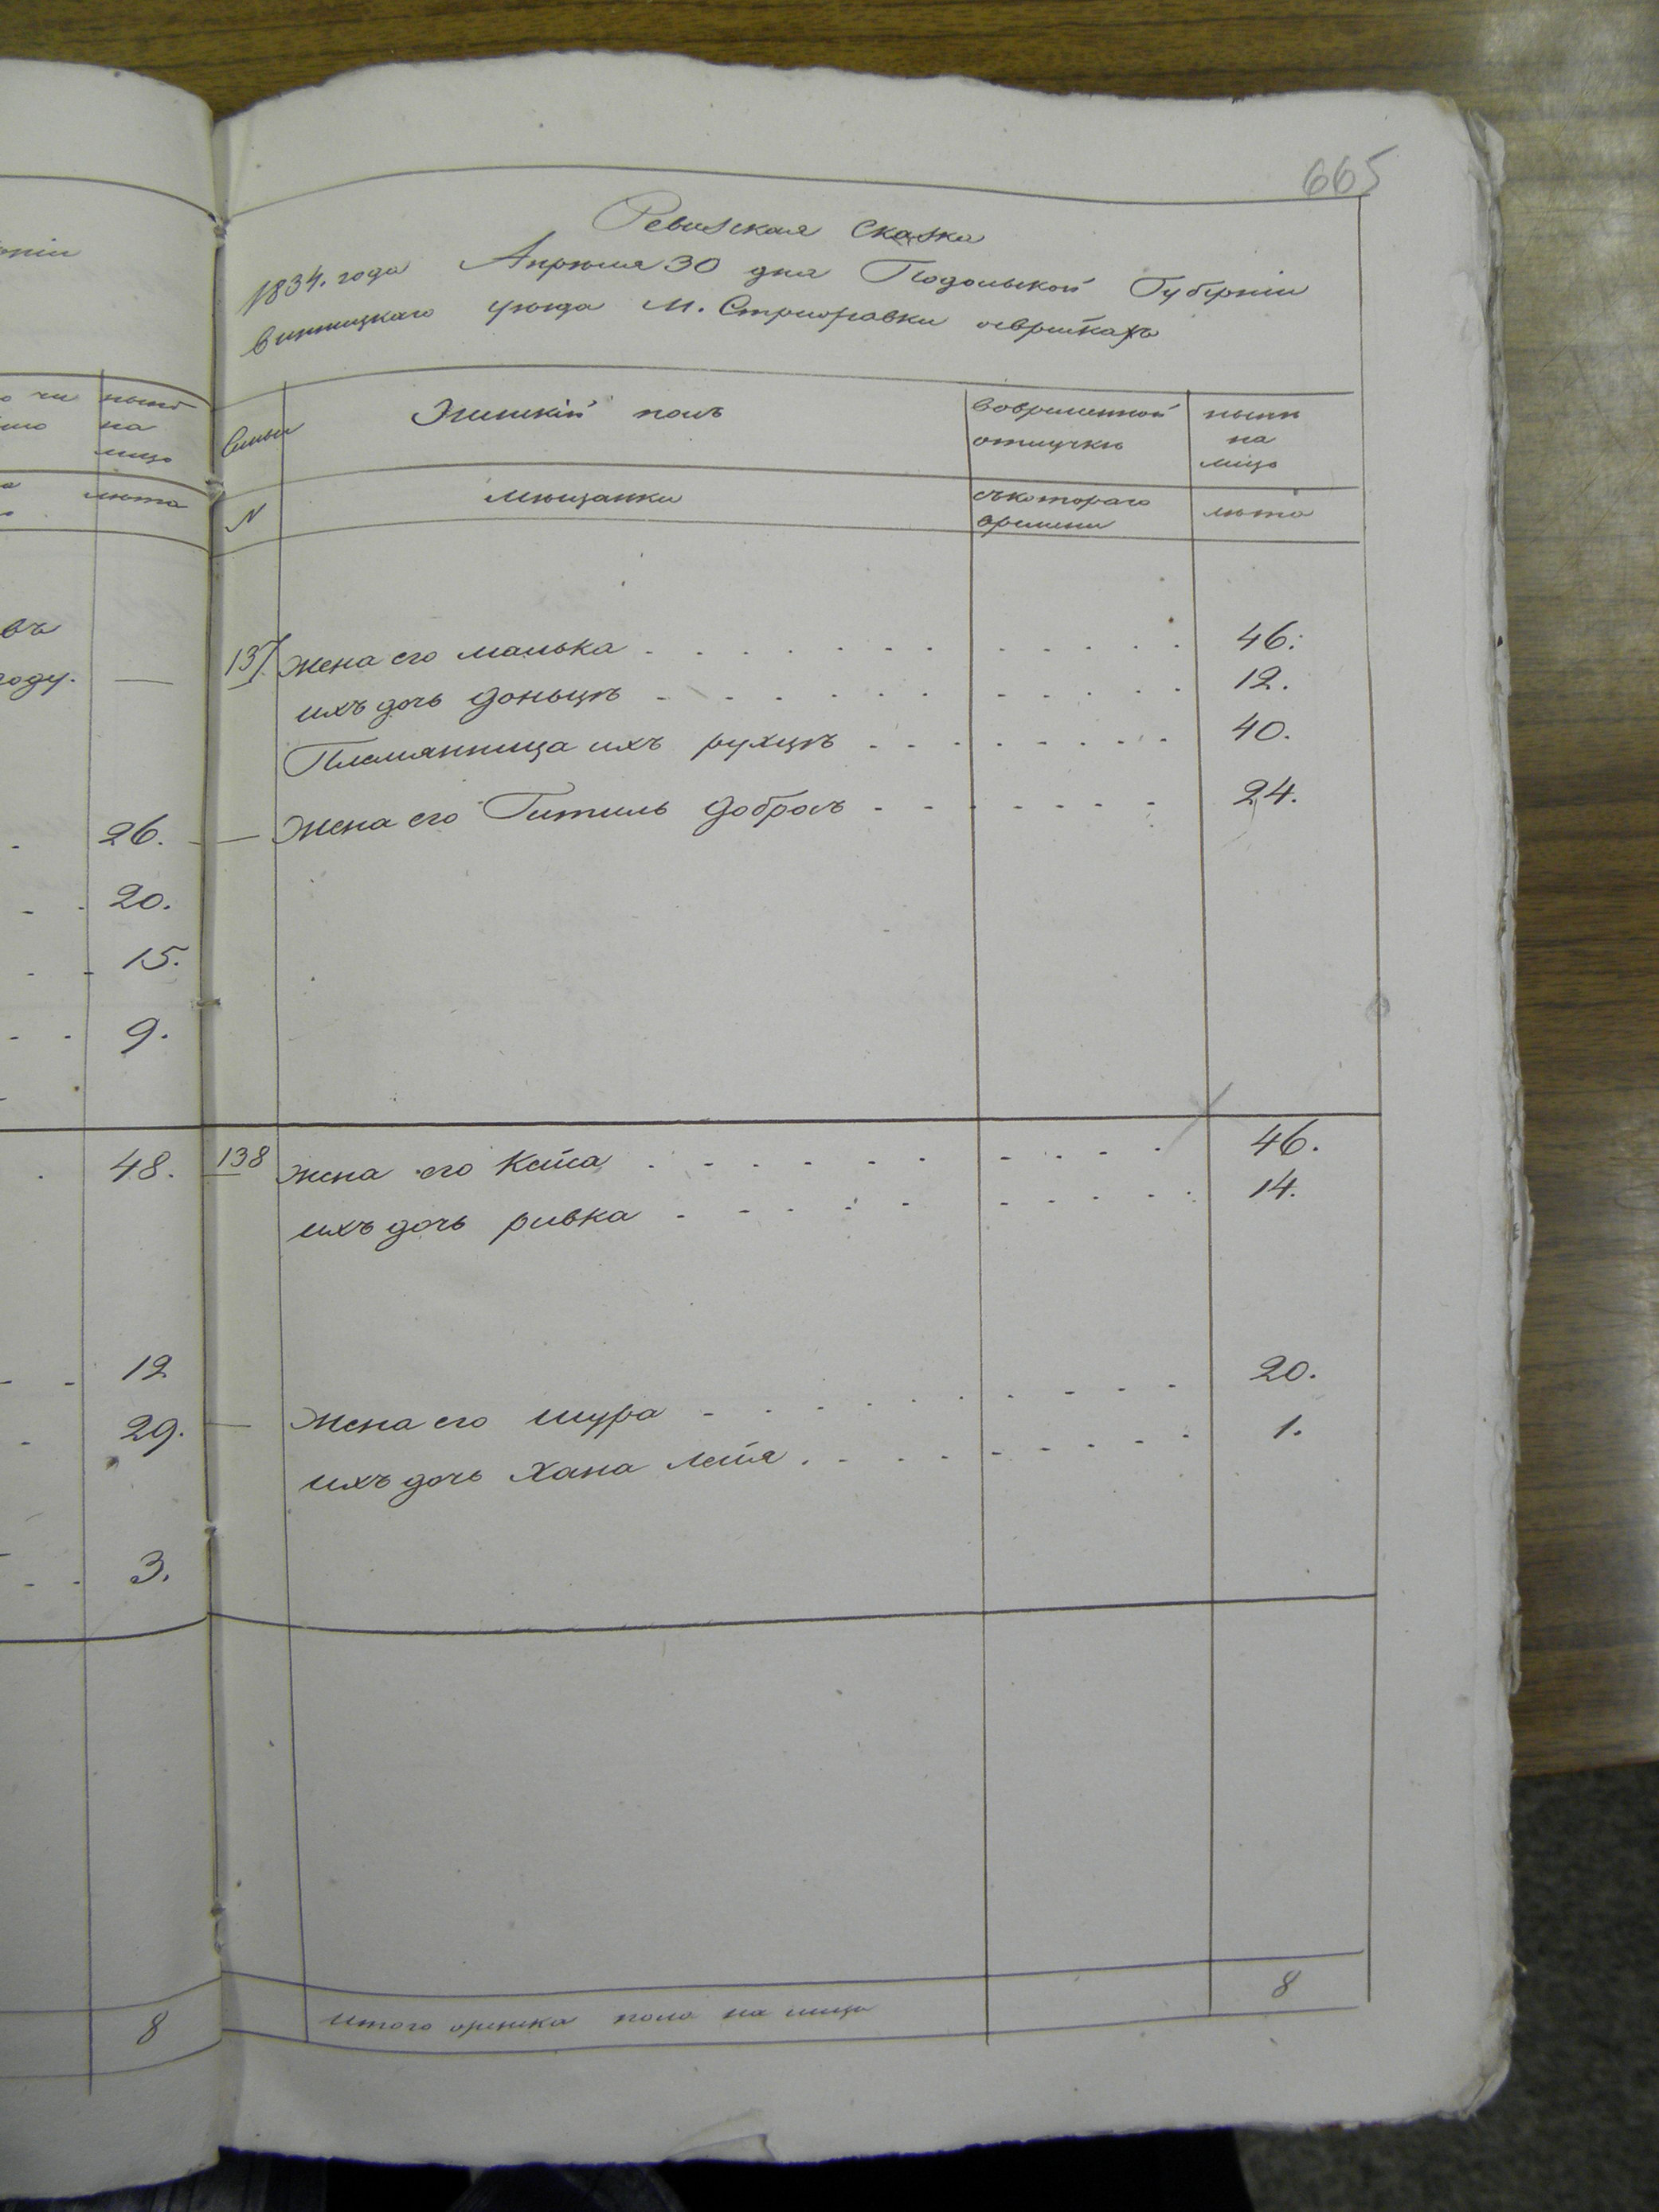 ніи
нынѣ
на
лицо
лѣта
въ
году.
26.
20.
15.
9.
48.
12
29.
3.
8
665
Ревизская сказка
1834. года Апрѣля 30 дня Подольской Губерніи
Винницкаго уѣзда М. Стрижавки о евреяхъ
Семьи
Женскій полъ
Во временной
отлучкѣ
нынѣ
на
лицо
N
Мѣщанки
съ котораго
времени
лѣта
137 Жена его малька 46.
ихъ дочь доньцѣ 12.
Племянница ихъ рухцѣ 40.
Жена его Гитиль Добрось 24.
138 Жена его Кейла 46.
ихъ дочь ривка 14.
Жена его шура 20.
ихъ дочь Хана Лейя 1.
Итого женска пола на лицо 8